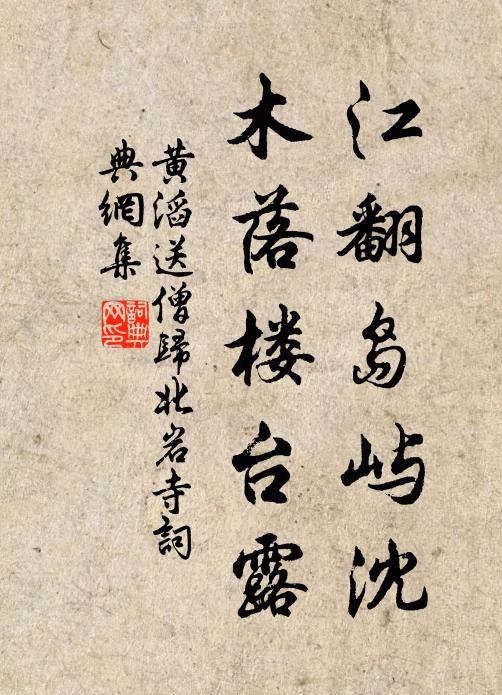 江翻岛屿沈
木落楼台露
黄滔送僧歸北岩寺詞
典網集
詞典网印